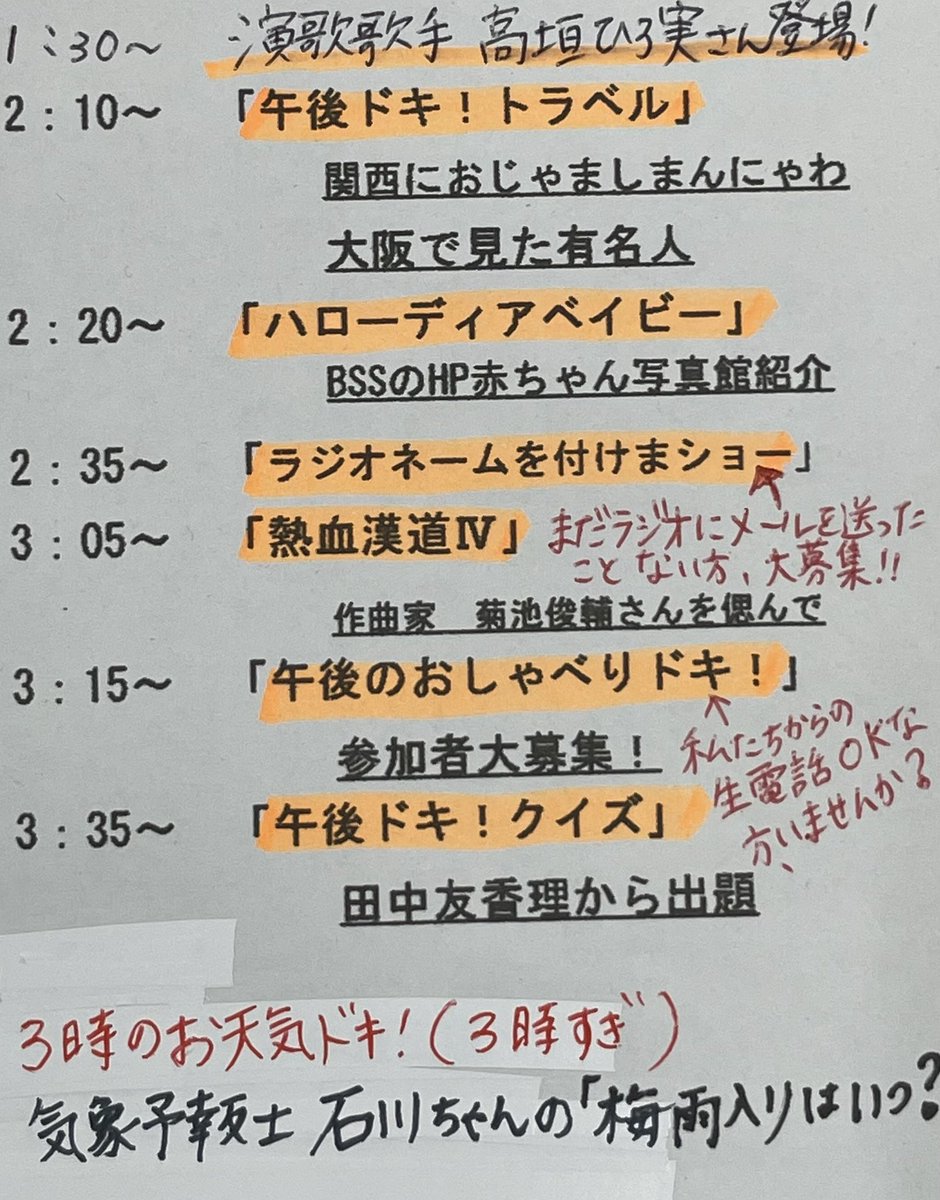 1:30~ 演歌歌手 高垣ひろ実さん登場!
2:10~ 「午後ドキ!トラベル」
関西におじゃましまんにゃわ
大阪で見た有名人
2:20~ 「ハローディアベイビー」
BSSのHP赤ちゃん写真館紹介
2:35~ 「ラジオネームを付けまショー」
3:05~ 「熱血漢道Ⅳ」
まだラジオにメールを送った
ことない方、大募集!!
作曲家 菊池俊輔さんを偲んで
3:15~ 「午後のおしゃべりドキ!」
参加者大募集!
私たちからの
生電話OKな
方、いませんか?
3:35~ 「午後ドキ!クイズ」
田中友香理から出題
3時のお天気ドキ!(3時すぎ)
気象予報士 石川ちゃんの「梅雨入りはいつ?